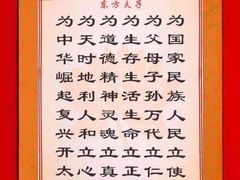 东方夫子
为国家民族人民立使
为父母子孙万代立仁
为生存生活生命立正
为道德精神灵魂立真
为天时地利人和立心
为中华崛起复兴开太